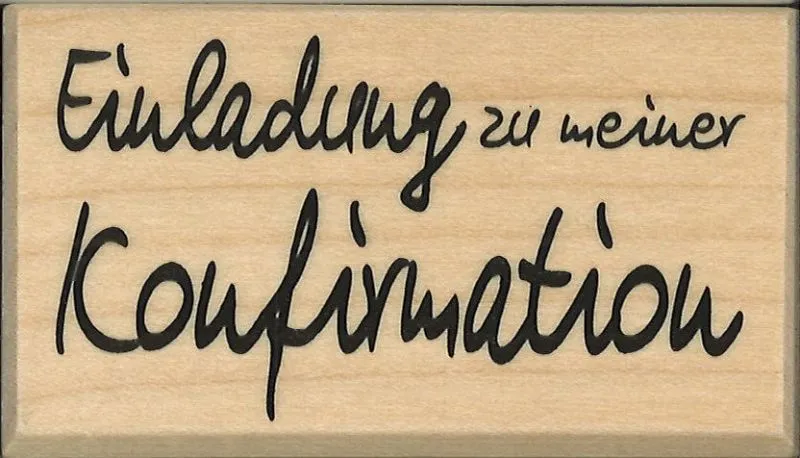 Einladung zu meiner
Konfirmation